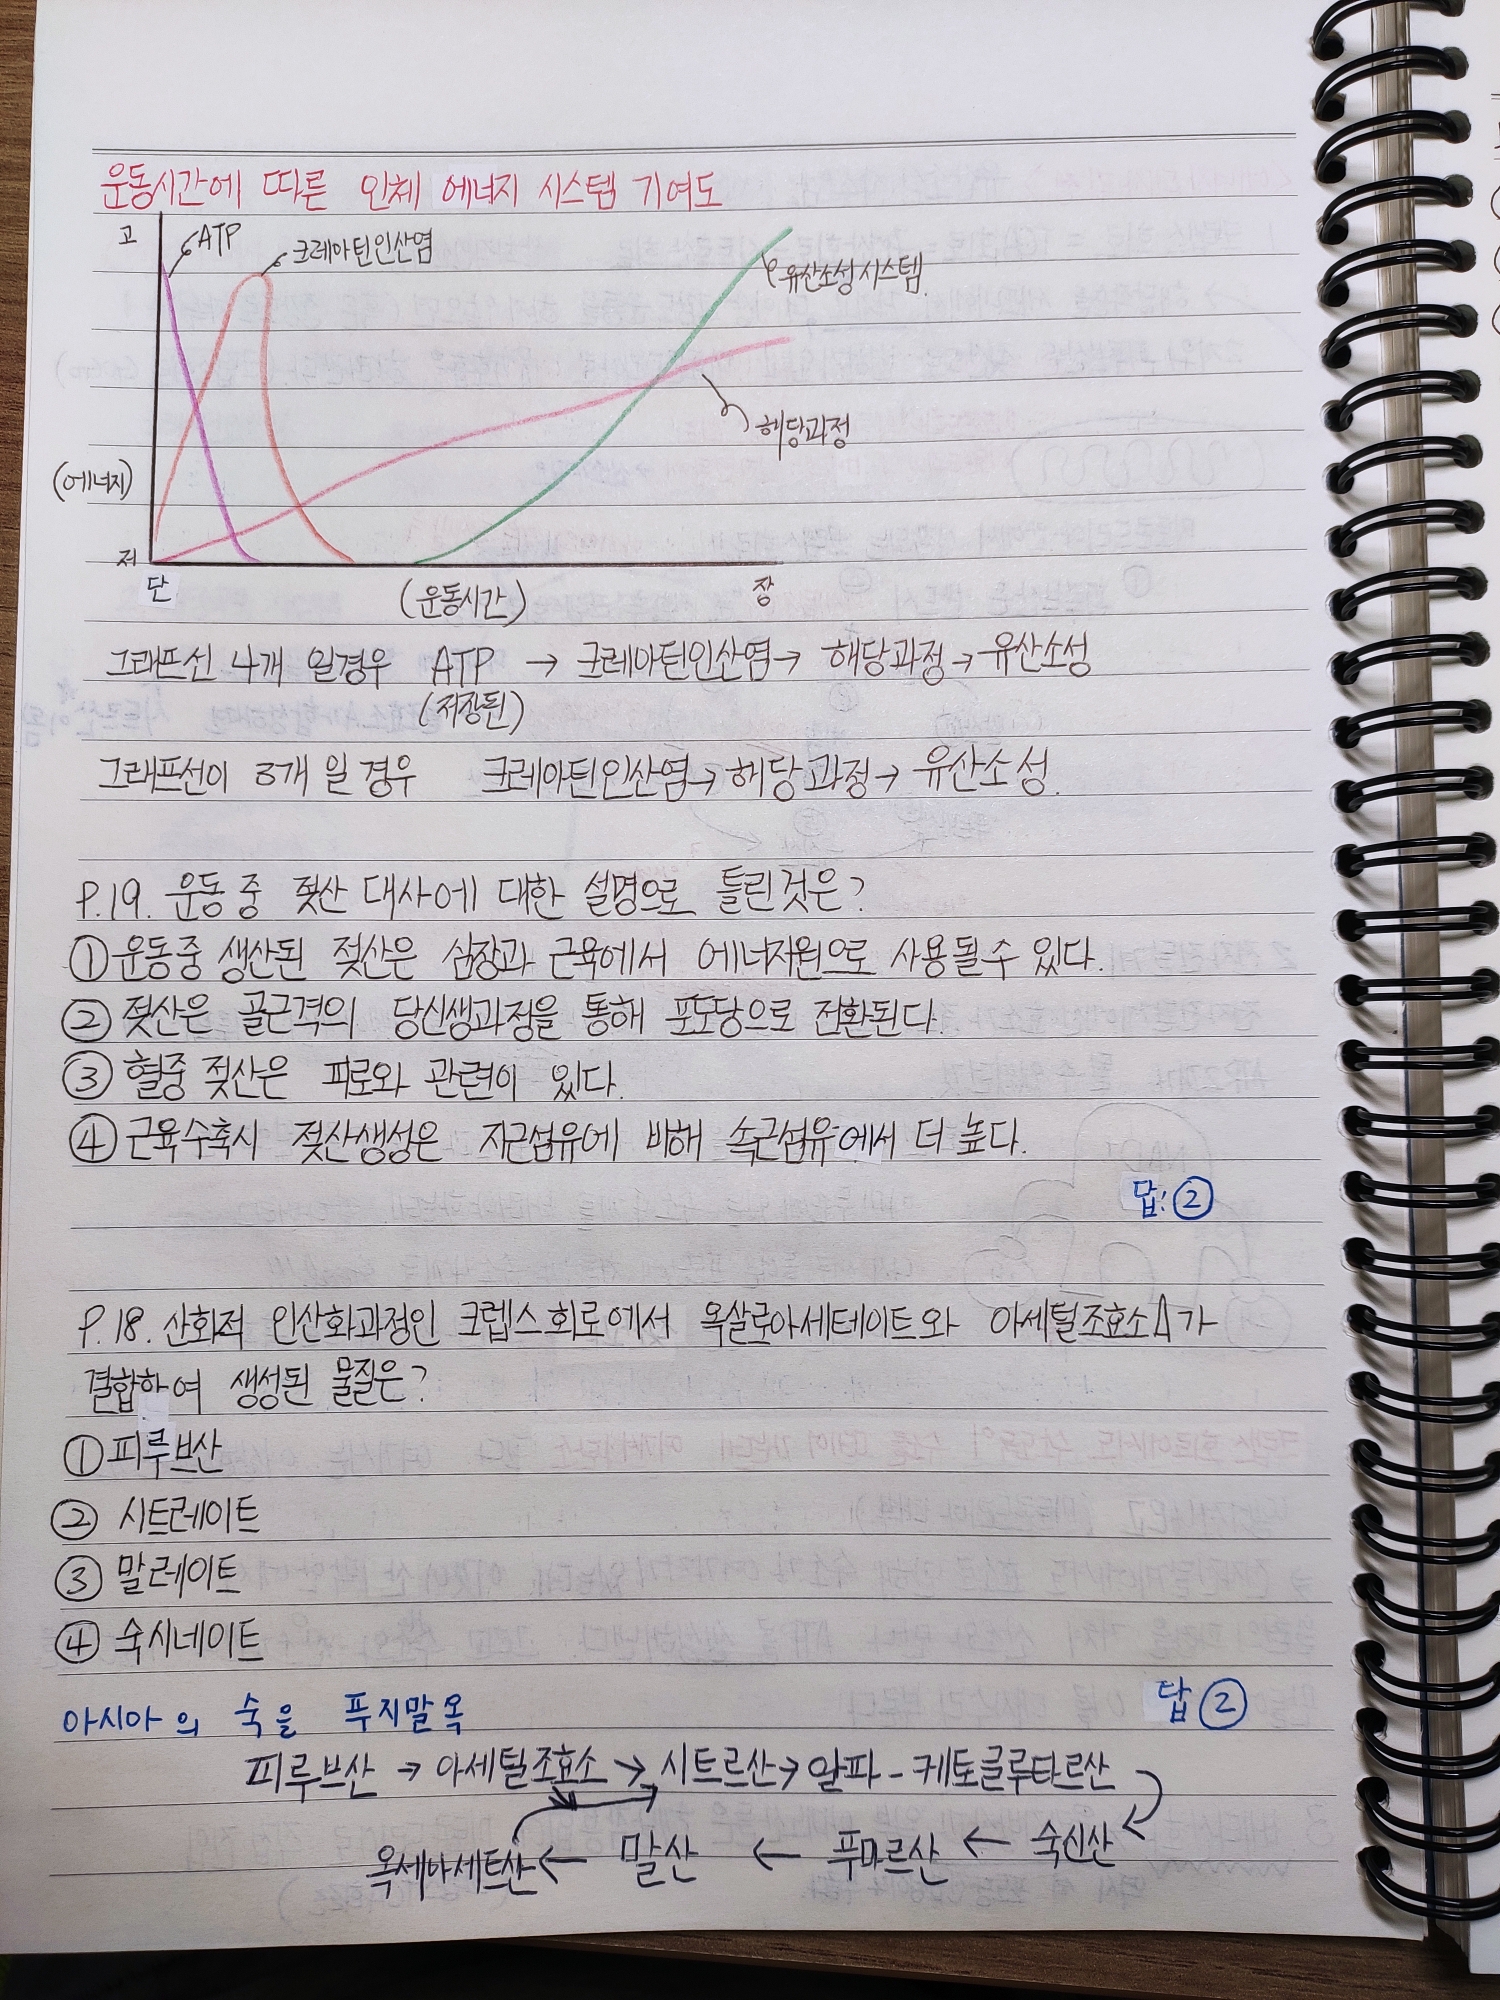 운동시간에 따른 인체 에너지 시스템 기여도
고
ATP
크레아틴인산염
유산소성시스템.
해당과정
(에너지)
저
단
(운동시간)
장
그래프선 4개 일경우 ATP → 크레아틴인산염→ 해당과정→유산소성
(저장된)
그래프선이 3개 일 경우 크레아틴인산염→해당과정→ 유산소성.
P.19. 운동중 젖산 대사에 대한 설명으로 틀린것은?
①운동중 생산된 젖산은 심장과 근육에서 에너지원으로 사용될수 있다.
② 젖산은 골근격의 당신생과정을 통해 포도당으로 전환된다.
③ 혈중 젖산은 피로와 관련이 있다.
④근육수축시 젖산생성은 지근섬유에 비해 속근섬유에서 더 높다.
답:②
P.18. 산화적 인산화과정인 크렙스회로에서 옥살로아세테이트와 아세틸조효소A가
결합하여 생성된 물질은?
①피루브산
② 시트레이트
③ 말레이트
④ 숙시네이트
답②
아시아의 숙을 푸지말옥
피루브산 → 아세틸조효소→시트르산→알파-케토글루타르산
옥세아세트산← 말산 ← 푸마르산 ← 숙신산